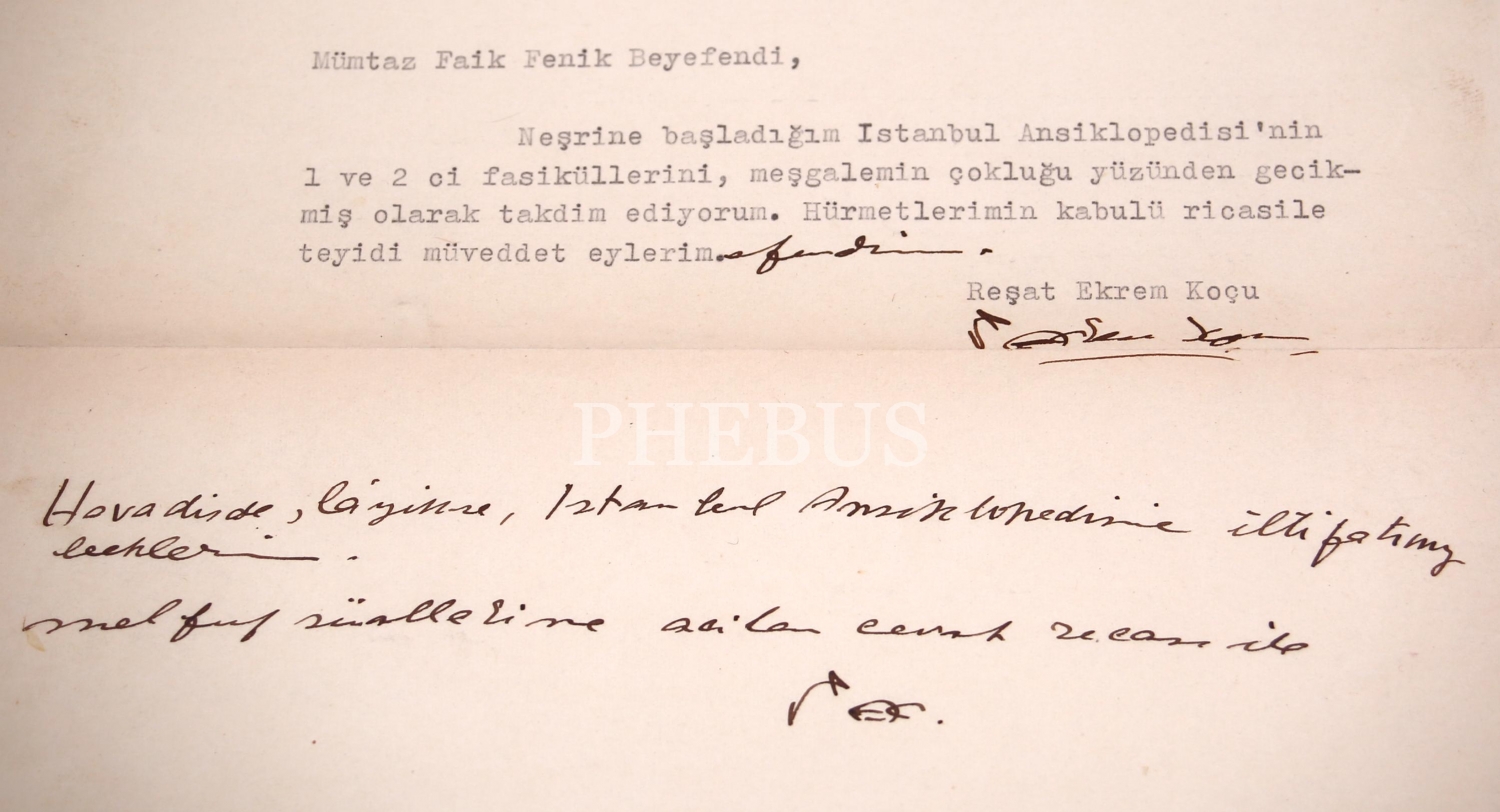 Mümtaz Faik Fenik Beyefendi,
Neşrine başladığım Istanbul Ansiklopedisi'nin
1 ve 2 ci fasiküllerini, meşgalemin çokluğu yüzünden gecik-
miş olarak takdim ediyorum. Hürmetlerimin kabulü ricasile
teyidi müveddet eylerim. efendim.
Reşat Ekrem Koçu
PHEBUS
Havadisde, lâyikse, Istanbul Ansiklopedisine iltifatınız
beklerim.
melfuf süallerime acilen cevap recası ile